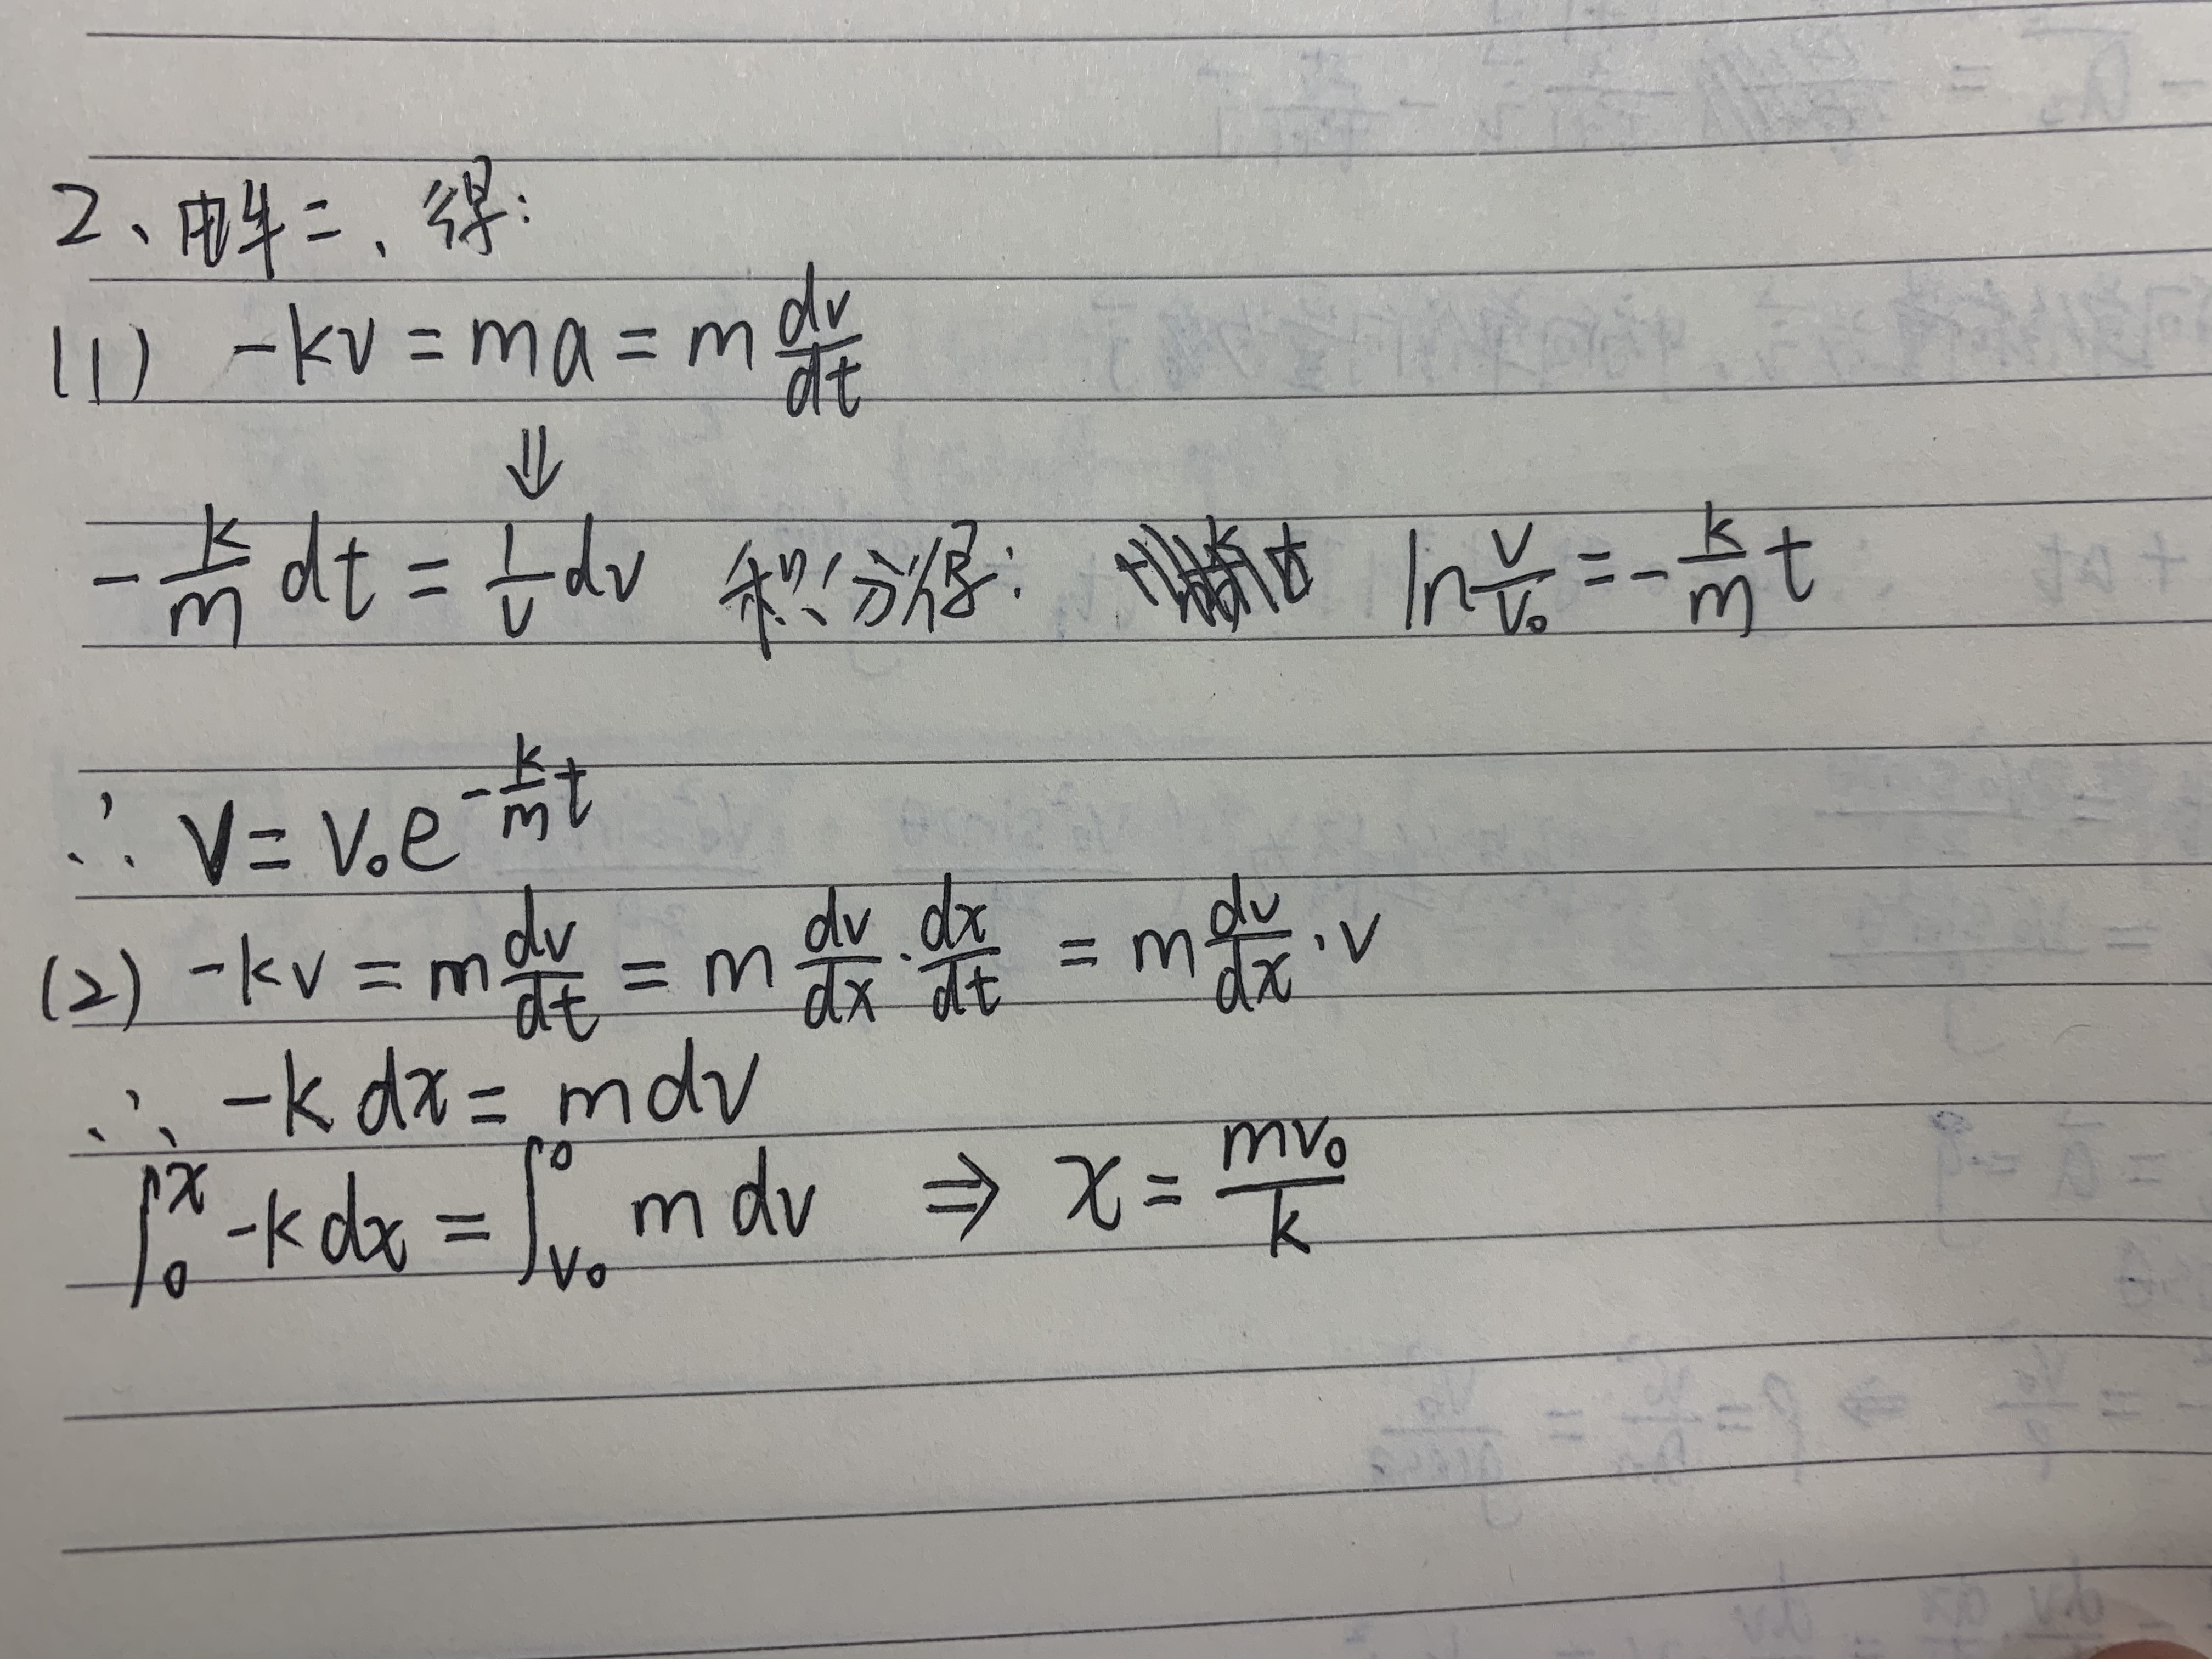 2、由牛二、得:
(1) -kv = ma = m dv/dt
⇓
-k/m dt = 1/v dv 积分得: ln v/v₀ = -k/m t
∴ v = v₀e^(-k/m t)
(2) -kv = m dv/dt = m dv/dx · dx/dt = m dv/dx · v
∴ -k dx = m dv
∫₀ˣ -k dx = ∫_{v₀}^0 m dv ⇒ x = mv₀/k